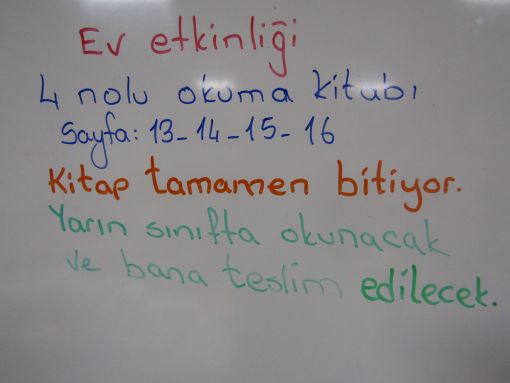 Ev etkinliği
4 nolu okuma kitabı
Sayfa: 13-14-15-16
Kitap tamamen bitiyor.
Yarın sınıfta okunacak
ve bana teslim edilecek.